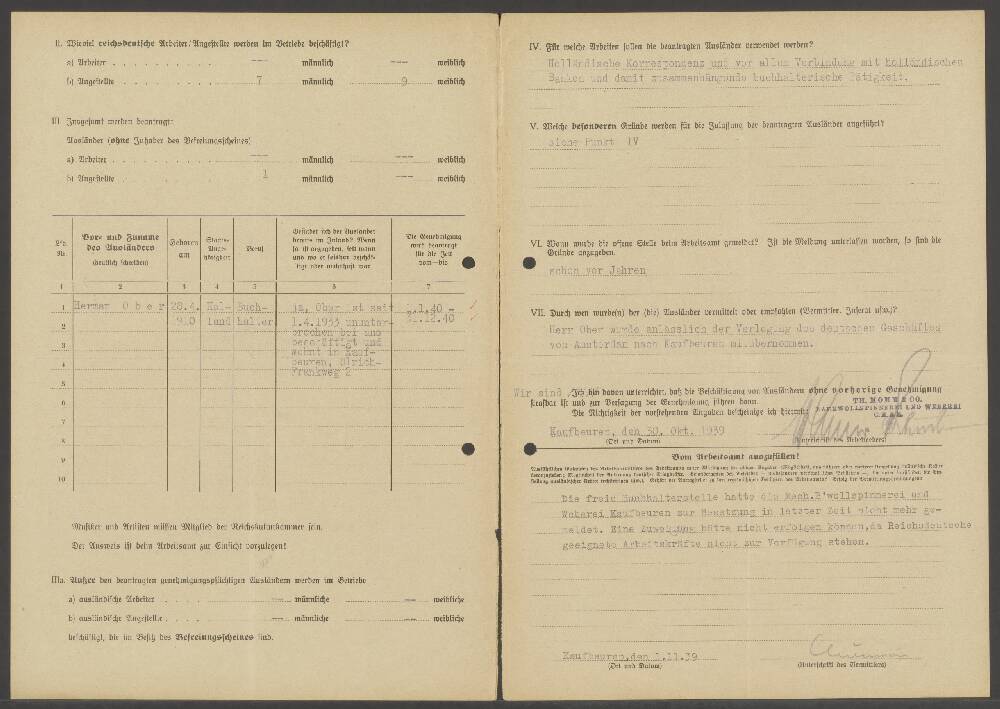 II. Wieviel reichsdeutsche Arbeiter/Angestellte werden im Betriebe beschäftigt?
a) Arbeiter — männlich — weiblich
b) Angestellte 7 männlich 9 weiblich
III Insgesamt werden beantragt:
Ausländer (ohne Inhaber des Befreiungsscheines)
a) Arbeiter — männlich — weiblich
b) Angestellte 1 männlich — weiblich
Lfd. Nr.
Vor- und Zuname des Ausländers (deutlich schreiben)
Geboren am
Staats-
Beruf
Befindet sich der Ausländer bereits im Inland? Wenn ja ist anzugeben, seit wann und wo er seither beschäftigt oder wohnhaft war
Die Genehmigung wird beantragt für die Zeit vom—bis
1 2 3 4 5 6 7
1 Herman Ober 28.4. Hol- Buch- ja, Ober ist seit 1.1.40 –
2 910 land halter 1.4.1933 ununter- 31.12.40
3 brochen bei uns
beschäftigt und
4 wohnt in Kauf-
beuren, Ulrich-
5 Frankweg 2
6
7
8
9
10
Musiker und Artisten müssen Mitglied der Reichskulturkammer sein.
Der Ausweis ist beim Arbeitsamt zur Einsicht vorzulegen!
IIIa. Außer den beantragten genehmigungspflichtigen Ausländern werden im Betriebe
a) ausländische Arbeiter — männliche — weibliche
b) ausländische Angestellte — männliche — weibliche
beschäftigt, die im Besitz des Befreiungsscheines sind.
IV. Für welche Arbeiten sollen die beantragten Ausländer verwendet werden?
Holländische Korrespondenz und vor allem Verbindung mit holländischen
Banken und damit zusammenhängende buchhalterische Tätigkeit.
V. Welche besonderen Gründe werden für die Zulassung der beantragten Ausländer angeführt?
siehe Punkt IV
VI. Wann wurde die offene Stelle beim Arbeitsamt gemeldet? Ist die Meldung unterlassen worden, so sind die
Gründe anzugeben.
schon vor Jahren
VII. Durch wen wurde(n) der (die) Ausländer vermittelt oder empfohlen (Vermittler, Inserat usw.)?
Herr Ober wurde anlässlich der Verlegung des deutschen Geschäftes
von Amsterdam nach Kaufbeuren mitübernommen.
Wir sind Ich bin davon unterrichtet, daß die Beschäftigung von Ausländern ohne vorherige Genehmigung
strafbar ist und zur Versagung der Genehmigung führen kann.
Die Richtigkeit der vorstehenden Angaben bescheinige ich hiermit:
Kaufbeuren, den 30. Okt. 1939
(Ort und Datum)
(Unterschrift des Arbeitgebers)
Vom Arbeitsamt auszufüllen!
Die freie Buchhalterstelle hatte die Mech.B'wollspinnerei und
Weberei Kaufbeuren zur Besetzung in letzter Zeit nicht mehr ge-
meldet. Eine Zuweisung hätte nicht erfolgen können,da Reichsdeutsche
geeignete Arbeitskräfte nicht zur Verfügung stehen.
Kaufbeuren,den 1.11.39
(Ort und Datum)